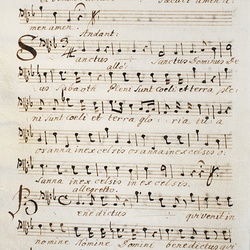 men amen.
Andant:
Sanctus Sanctus Dominus De
allo
us Sabaoth Pleni sunt coeli et terra, ple
ni sunt coeli et terra glo ria tu a
osanna in excelsis osanna in excelsis o
sanna in excelsis in excelsis.
allegretto
Benedictus qui venit in
nomine nomine Domini benedictus qui